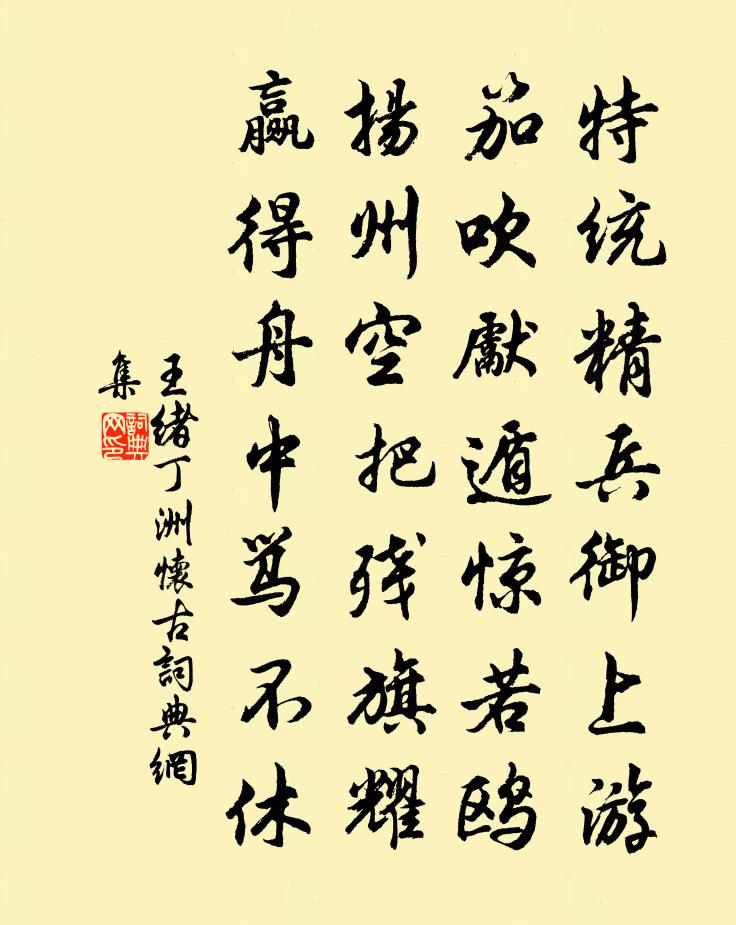 特统精兵御上游
笳吹献遁惊若鸥
揚州空把残旗耀
赢得舟中骂不休
王绪丁洲懷古詞典網
集
詞典网印